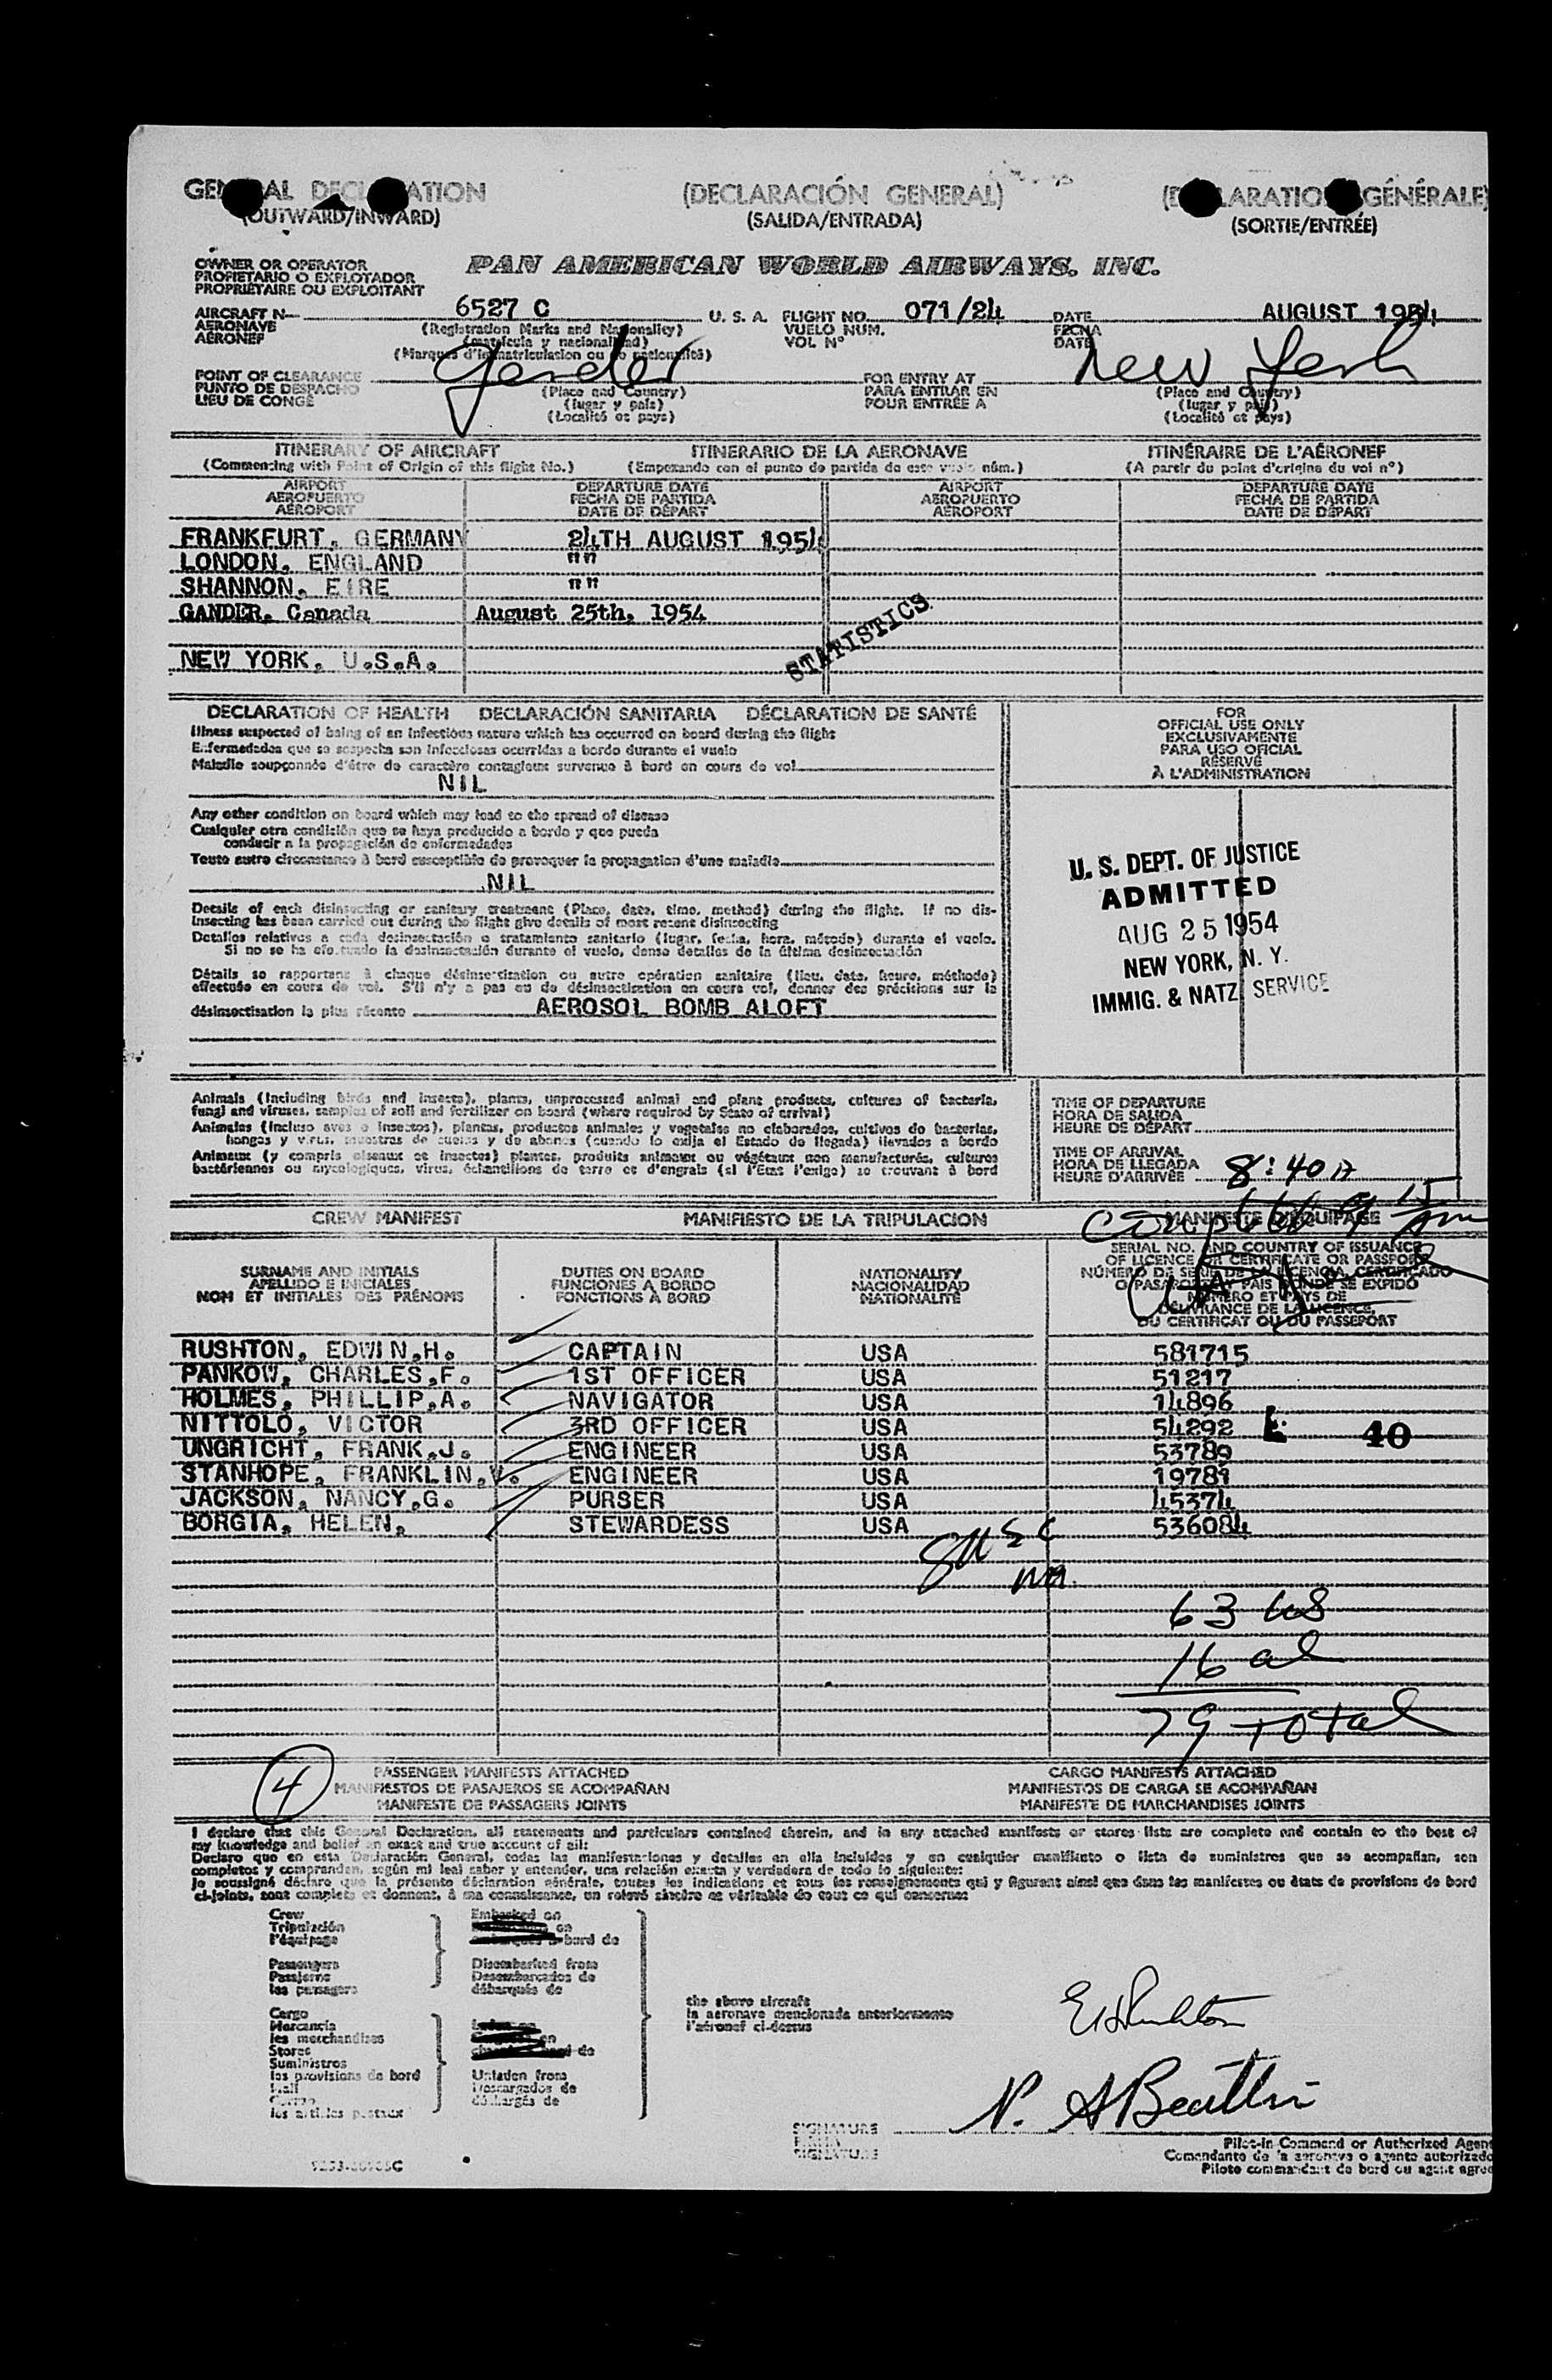 GENERAL DECLARATION (DECLARACIÓN GENERAL) (DÉCLARATION GÉNÉRALE)
(OUTWARD/INWARD) (SALIDA/ENTRADA) (SORTIE/ENTRÉE)
OWNER OR OPERATOR
PROPIETARIO O EXPLOTADOR
PROPRIÉTAIRE OU EXPLOITANT
PAN AMERICAN WORLD AIRWAYS, INC.
AIRCRAFT N— 6527 C U. S. A. FLIGHT NO. 071/24 DATE AUGUST 1954
AERONAVE (Registration Marks and Nationality) VUELO NUM. FECHA
AÉRONEF (matrícula y nacionalidad) VOL N° DATE
(Marques d'immatriculation ou de nationalité)
POINT OF CLEARANCE Gander FOR ENTRY AT New York
PUNTO DE DESPACHO (Place and Country) PARA ENTRAR EN (Place and Country)
LIEU DE CONGÉ (lugar y país) POUR ENTRÉE A (lugar y país)
(Localité et pays) (Localité et pays)
ITINERARY OF AIRCRAFT ITINERARIO DE LA AERONAVE ITINÉRAIRE DE L'AÉRONEF
(Commencing with Point of Origin of this flight No.) (Empezando con el punto de partida de este vuelo núm.) (A partir du point d'origine du vol n°)
AIRPORT DEPARTURE DATE AIRPORT DEPARTURE DATE
AEROPUERTO FECHA DE PARTIDA AEROPUERTO FECHA DE PARTIDA
AÉROPORT DATE DE DÉPART AÉROPORT DATE DE DÉPART
FRANKFURT, GERMANY 24TH AUGUST 1954
LONDON, ENGLAND ""
SHANNON, EIRE ""
GANDER, Canada August 25th, 1954
STATISTICS
NEW YORK, U.S.A.
DECLARATION OF HEALTH DECLARACIÓN SANITARIA DÉCLARATION DE SANTÉ
Illness suspected of being of an infectious nature which has occurred on board during the flight
Enfermedades que se sospecha son infecciosas ocurridas a bordo durante el vuelo
Maladie soupçonnée d'être de caractère contagieux survenue à bord en cours de vol
NIL
Any other condition on board which may lead to the spread of disease
Cualquier otra condición que se haya producido a bordo y que pueda
conducir a la propagación de enfermedades
Toute autre circonstance à bord susceptible de provoquer la propagation d'une maladie
NIL
Details of each disinsecting or sanitary treatment (Place, date, time, method) during the flight. If no dis-
insecting has been carried out during the flight give details of most recent disinsecting
Detalles relativos a cada desinsectación o tratamiento sanitario (lugar, fecha, hora, método) durante el vuelo.
Si no se ha efectuado la desinsectación durante el vuelo, dense detalles de la última desinsectación
Détails se rapportant à chaque désinsectisation ou autre opération sanitaire (lieu, date, heure, méthode)
effectuée en cours de vol. S'il n'y a pas eu de désinsectisation en cours vol, donner des précisions sur la
désinsectisation la plus récente AEROSOL BOMB ALOFT
FOR
OFFICIAL USE ONLY
EXCLUSIVAMENTE
PARA USO OFICIAL
RÉSERVÉ
À L'ADMINISTRATION
U. S. DEPT. OF JUSTICE
ADMITTED
AUG 25 1954
NEW YORK, N. Y.
IMMIG. & NATZ SERVICE
Animals (including birds and insects), plants, unprocessed animal and plant products, cultures of bacteria,
fungi and viruses, samples of soil and fertilizer on board (where required by State of arrival)
Animales (incluso aves o insectos), plantas, productos animales y vegetales no elaborados, cultivos de bacterias,
hongos y virus, muestras de suelos y de abonos (cuando lo exija el Estado de llegada) llevados a bordo
Animaux (y compris oiseaux et insectes) plantes, produits animaux ou végétaux non manufacturés, cultures
bactériennes ou mycologiques, virus, échantillons de terre et d'engrais (si l'Etat l'exige) se trouvant à bord
TIME OF DEPARTURE
HORA DE SALIDA
HEURE DE DÉPART
TIME OF ARRIVAL
HORA DE LLEGADA
HEURE D'ARRIVÉE 8:40 A
CREW MANIFEST MANIFIESTO DE LA TRIPULACION MANIFESTE D'ÉQUIPAGE
Completed 9 15 Am
SURNAME AND INITIALS DUTIES ON BOARD NATIONALITY SERIAL NO. AND COUNTRY OF ISSUANCE
APELLIDO E INICIALES FUNCIONES A BORDO NACIONALIDAD OF LICENCE OR CERTIFICATE OR PASSPORT
NOM ET INITIALES DES PRÉNOMS FONCTIONS À BORD NATIONALITÉ NÚMERO DE SERIE DE LA LICENCIA, CERTIFICADO
O PASAPORTE Y PAIS DONDE SE EXPIDÓ
NUMÉRO ET PAYS DE
DÉLIVRANCE DE LA LICENCE,
DU CERTIFICAT OU DU PASSEPORT
RUSHTON, EDWIN,H. CAPTAIN USA 581715
PANKOW, CHARLES,F. 1ST OFFICER USA 51217
HOLMES, PHILLIP,A. NAVIGATOR USA 14896
NITTOLO, VICTOR 3RD OFFICER USA 54292
UNGRICHT, FRANK,J. ENGINEER USA 53789
E 40
STANHOPE, FRANKLIN,V. ENGINEER USA 19781
JACKSON, NANCY,G. PURSER USA 45374
BORGIA, HELEN, STEWARDESS USA 536084
8 USC
63 US
16 al
79 total
4
PASSENGER MANIFESTS ATTACHED CARGO MANIFESTS ATTACHED
MANIFIESTOS DE PASAJEROS SE ACOMPAÑAN MANIFIESTOS DE CARGA SE ACOMPAÑAN
MANIFESTE DE PASSAGERS JOINTS MANIFESTE DE MARCHANDISES JOINTS
I declare that this General Declaration, all statements and particulars contained therein, and in any attached manifests or stores lists are complete and contain to the best of
my knowledge and belief an exact and true account of all:
Declaro que en esta Declaración General, todas las manifestaciones y detalles en ella incluídos y en cualquier manifiesto o lista de suministros que se acompañan, son
completos y comprenden, según mi leal saber y entender, una relación exacta y verdadera de todo lo siguiente:
Je soussigné déclare que la présente déclaration générale, toutes les indications et tous les renseignements qui y figurent ainsi que dans les manifestes ou états de provisions de bord
ci-joints, sont complets et donnent, à ma connaissance, un relevé sincère et véritable de tout ce qui concerne:
Crew Embarked on
Tripulación on
l'équipage bord de
Passengers Disembarked from
Pasajeros Desembarcados de
les passagers débarqués de
the above aircraft
la aeronave mencionada anteriormente
l'aéronef ci-dessus
Cargo
Mercancía
les marchandises
Stores de
Suministros
les provisions de bord Unladen from
Mail Descargados de
Correo déchargés de
les articles postaux
EHRushton
N. A Beattie
SIGNATURE
FIRMA
SIGNATURE
Pilot-in Command or Authorized Agent
Comandante de la aeronave o agente autorizado
Pilote commandant de bord ou agent agréé